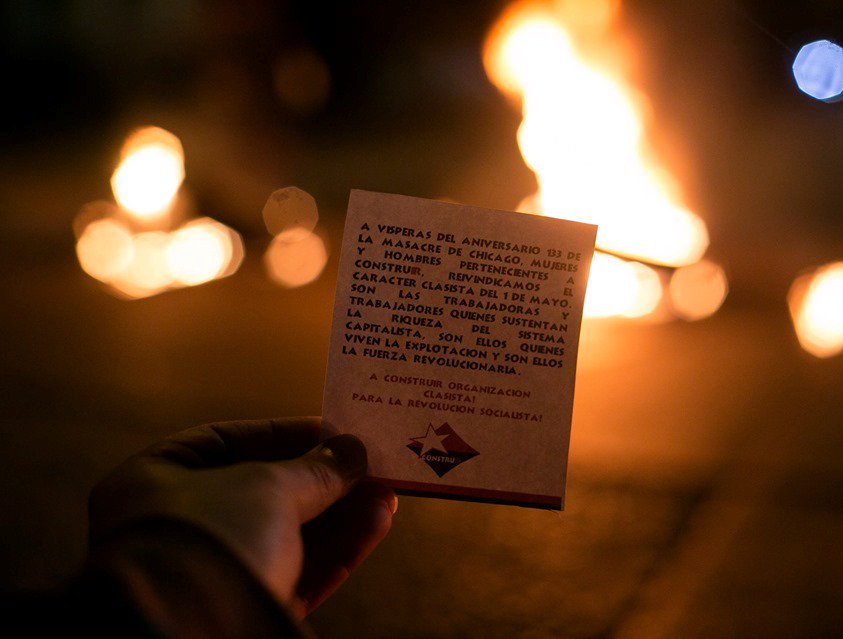 A VISPERAS DEL ANIVERSARIO 133 DE
LA MASACRE DE CHICAGO, MUJERES
Y HOMBRES PERTENECIENTES A
CONSTRUIR, REIVINDICAMOS EL
CARACTER CLASISTA DEL 1 DE MAYO.
SON LAS TRABAJADORAS Y
TRABAJADORES QUIENES SUSTENTAN
LA RIQUEZA DEL SISTEMA
CAPITALISTA, SON ELLOS QUIENES
VIVEN LA EXPLOTACION Y SON ELLOS
LA FUERZA REVOLUCIONARIA.
A CONSTRUIR ORGANIZACION
CLASISTA!
PARA LA REVOLUCION SOCIALISTA!